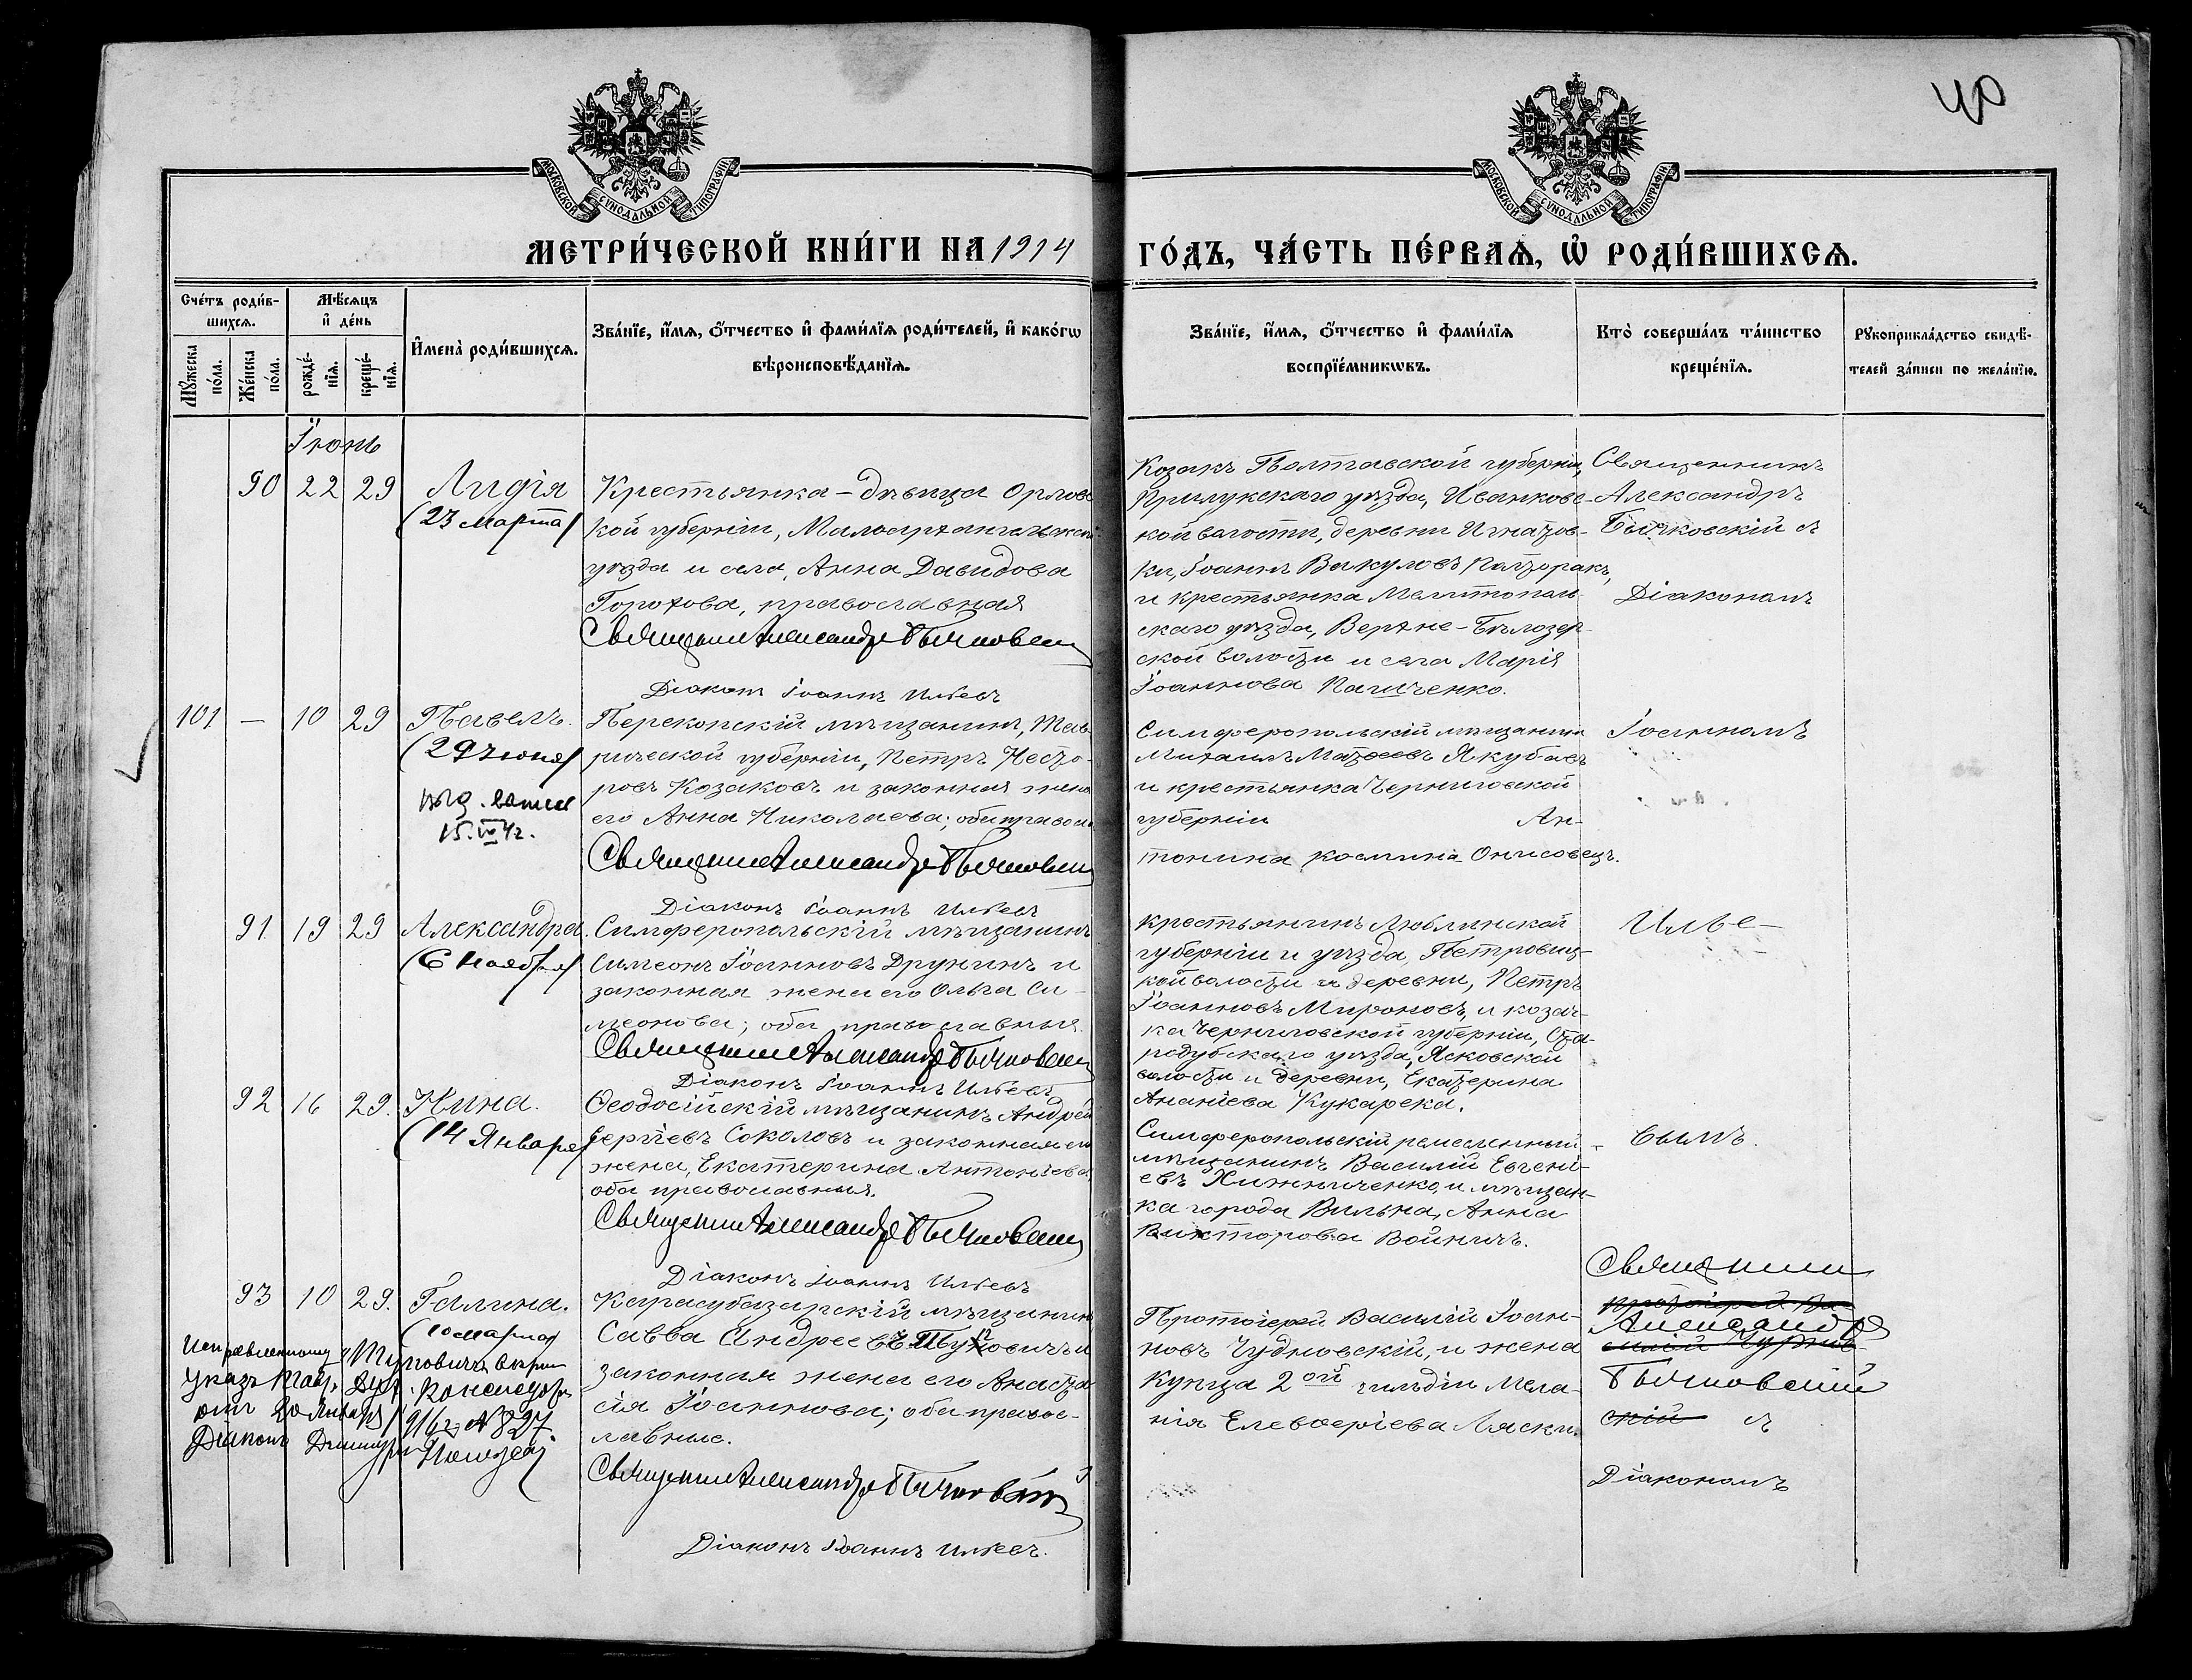 40
МОСКОВСКОЙ СѴНОДАЛЬНОЙ ТИПОГРАФІИ
МОСКОВСКОЙ СѴНОДАЛЬНОЙ ТИПОГРАФІИ
МЕТРИ́ЧЕСКОЙ КНИ́ГИ НА 1914
ГО́ДЪ, ЧА́СТЬ ПЕ́РВАѦ, Ѡ҆ РОДИ́ВШИХСѦ.
Сче́тъ роди́в-
шихсѧ.
Мꙋ́жеска по́ла.
Же́нска по́ла.
Мѣ́сѧцъ
и҆ де́нь
рожде́-
нїѧ.
креще́-
нїѧ.
И҆мена̀ роди́вшихсѧ.
Зва́нїе, и҆́мѧ, ѻ҆́тчество и҆ фами́лїѧ роди́телей, и҆ како́гѡ
вѣроисповѣ́данїѧ.
Зва́нїе, и҆́мѧ, ѻ҆́тчество и҆ фами́лїѧ
воспрїе́мникѡвъ.
Кто̀ соверша́лъ та́инство
креще́нїѧ.
Рꙋкоприкла́дство свидѣ́-
телей за́писи по жела́нїю.
Іюнь
90 22 29 Лидія
(23 марта)
Крестьянка-дѣвица Орловс
кой губерніи, Малоархангельска
уѣзда и села, Анна Давидова
Горохова, православная
Священник Александр Бычковский
Діаконъ Іоаннъ Ильевъ
Козакъ Полтавской губерніи,
Прилукскаго уѣзда, Иванковс-
кой волости, деревни Игнатов-
ки, Іоаннъ Вакуловъ
и крестьянка Мелитополь-
скаго уѣзда, Верхне-Бѣлозер-
ской волости и села Марія
Іоаннова Пащенко.
Священникъ
Александръ
Бычковскій съ
Діакономъ
101 — 10 29 Павелъ.
(29 іюня)
15.IV 42.
Перекопскій мѣщанинъ, Тав-
рической губерніи, Петръ Несто-
ровъ Козаковъ и законная жена
его Анна Николаева; оба правосл
Священник Александр Бычковский
Діаконъ Іоаннъ Ильевъ
Симферопольскій мѣщанинъ
Михаилъ Матѳеевъ Якубовъ
и крестьянка Черниговской
губерніи Ан-
тонина Космина Онисовецъ.
Іоанномъ
91 19 29 Александра.
(6 Ноября)
Симферопольскій мѣщанинъ
Симеонъ Іоанновъ Друнинъ и
законная жена его Ольга Си-
меонова; оба православныя.
Священник Александр Бычковский
Діаконъ Іоаннъ Ильевъ
Крестьянинъ Люблинской
губерніи и уѣзда, Петровиц-
кой волости и деревни, Петръ
Іоанновъ Мироновъ, и козач-
ка Черниговской губерніи, Ста-
родубскаго уѣзда, Ясковской
волости и деревни, Екатерина
Ананіева Кукарека.
Илье-
92 16 29. Нина.
(14 Января)
Ѳеодосійскій мѣщанинъ Андрей
Сергіевъ Соколовъ и законная его
жена, Екатерина Антоніева
оба православныя.
Священник Александр Бычковский
Діаконъ Іоаннъ Ильевъ
Симферопольскій ремесленный
мѣщанинъ Василій Евгені-
евъ Хижниченко, и мѣщан-
ка города Вильна, Анна
Викторова Войничъ.
вымъ.
93 10 29. Галина.
(10 марта)
Карасубазарскій мѣщанинъ
Савва Андреевъ Тупковичъ и
законная жена его Анаста-
сія Іоаннова; оба правос-
лавные.
Священник Александр Бычковский
Діаконъ Іоаннъ Ильевъ.
Исправленному "Туповичъ" верить
Указъ Тавр. Дух. Консисторіи
отъ 20 Января 1916 г. № 827
Діаконъ Димитрій
Протоіерей Василій Іоан-
новъ Чудновскій, и жена
купца 2ой гильдіи Мела-
нія Елевѳеріева Ляски.
Священник
протоіерей Ва-
Александр
силій Чуднов-
Бычковский
скій съ
Діакономъ